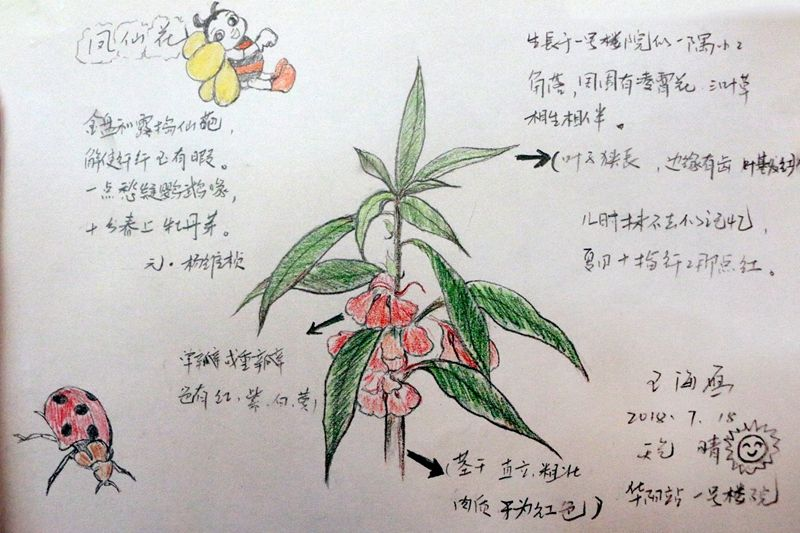 凤仙花
金盘和露捣仙葩,
解使纤纤玉有暇。
一点愁凝鹦鹉喙,
十分春上牡丹芽。
元·杨维桢
生長于一号楼院仅一隅小小
角落,周围有凌霄花、三叶草
相生相伴。
(叶子狭長,边缘有齿
儿时抹不去的记忆,
夏日十指纤纤那点红。
单瓣或重瓣
色有红、紫、白、黄
(茎干直立粗壮
肉质 干为红色)
王海
2018.7.18
天气 晴
华阴站一号楼院